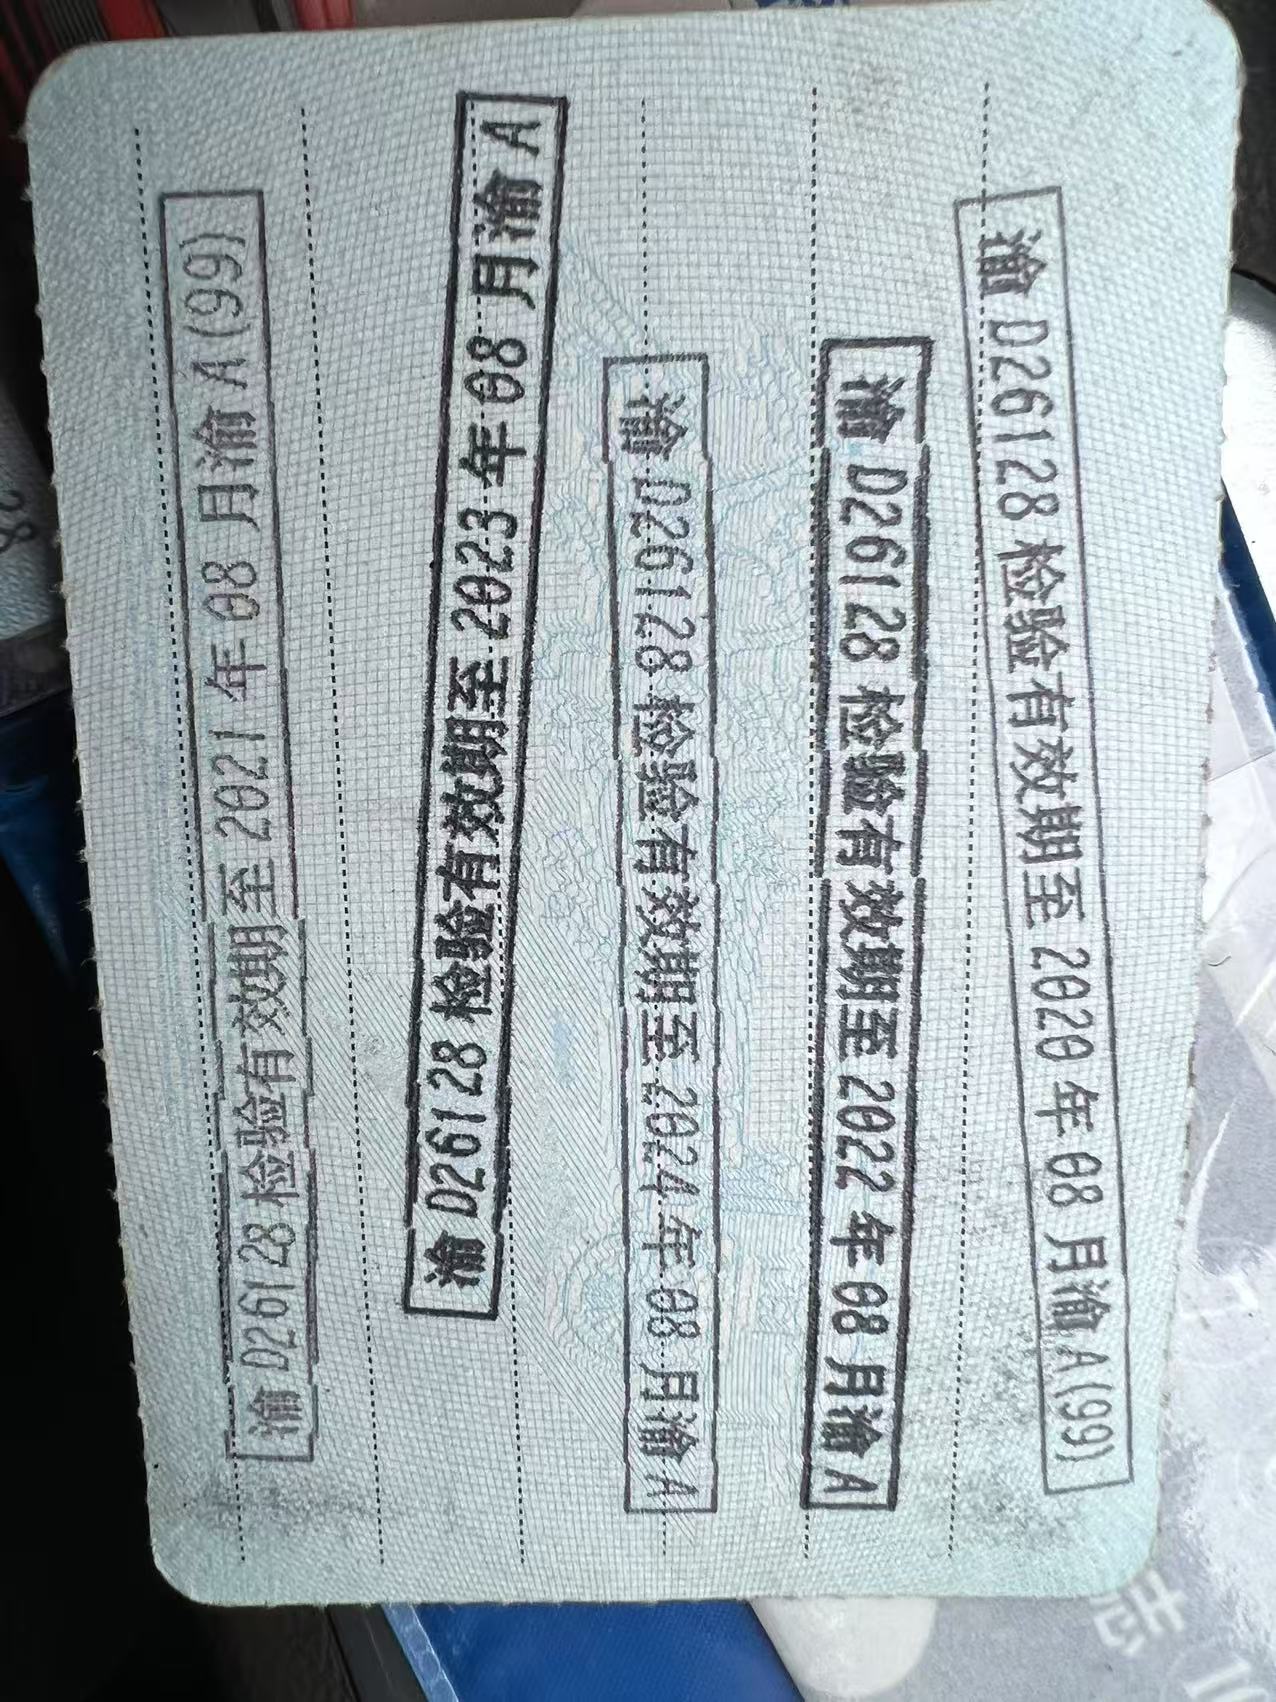 渝D26128检验有效期至2020年08月渝A(99)
渝D26128检验有效期至2022年08月渝A
渝D26128检验有效期至2024年08月渝A
渝D26128检验有效期至2023年08月渝A
渝D26128检验有效期至2021年08月渝A(99)